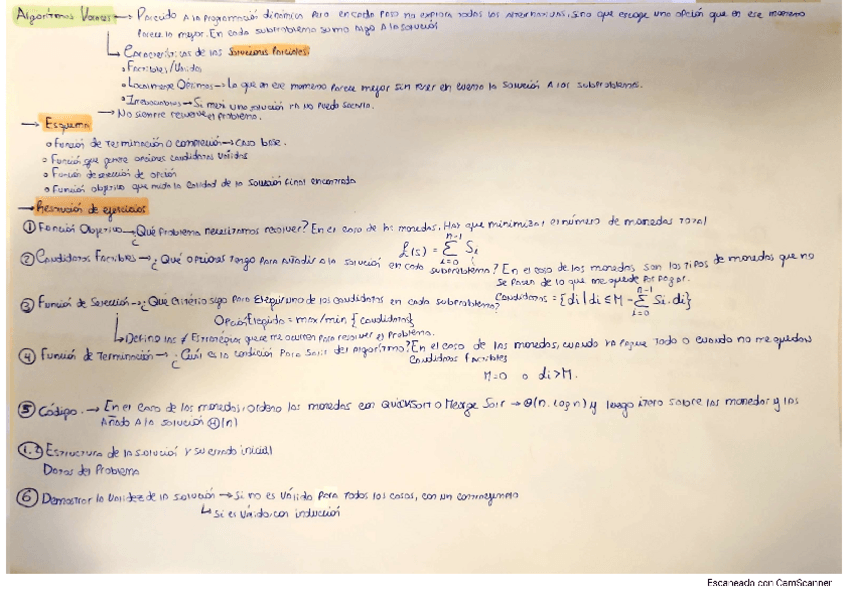 Algoritmos Voraces → Parecido a la programación dinámica pero en cada paso no explora todas las alternativas, sino que escoge una opción que en ese momento
Parece la mejor. En cada subproblema sumo algo a la solución
Características de las Soluciones Parciales:
• Factibles/Válidas
• Localmente Óptimas → Lo que en ese momento parece mejor sin tener en cuenta la solución a los subproblemas.
• Irrevocables → Si meti una solución ya no puedo sacarla.
→ No siempre resuelve el problema.
→ Esquema
• Función de terminación o compleción → caso base.
• Función que genere opciones candidatas válidas
• Función de selección de opción
• Función objetivo que mida la calidad de la solución final encontrada
→ Resolución de ejercicios
① Función Objetivo → ¿Qué problema necesitamos resolver? En el caso de las monedas, Hay que minimizar el número de monedas total
f(s) = Σ Si
n-1
i=0
② Candidatos Factibles → ¿Qué opciones tengo para añadir a la solución en cada subproblema? En el caso de las monedas son los tipos de monedas que no
se pasen de lo que me quede por pagar.
Candidatos = {di | di ≤ M - Σ Si.di}
n-1
i=0
③ Función de Selección → ¿Qué criterio sigo para elegir uno de los candidatos en cada subproblema?
Opción Elegida = max/min {candidatos}
↳ Defino las ≠ Estrategias que me ocurren para resolver el problema.
④ Función de Terminación → ¿Cuál es la condición para salir del algoritmo? En el caso de las monedas, cuando ya pague todo o cuando no me quedan
candidatos factibles
M=0 o di>M.
⑤ Código. → En el caso de las monedas, ordeno las monedas con QuickSort o Merge Sort → Θ(n. log n) y luego itero sobre las monedas y las
Añado a la solución Θ(n)
Estructura de la solución y su estado inicial
Datos del Problema
⑥ Demostrar la validez de la solución → Si no es válido para todos los casos, con un contraejemplo
↳ Si es válida con inducción
Escaneado con CamScanner